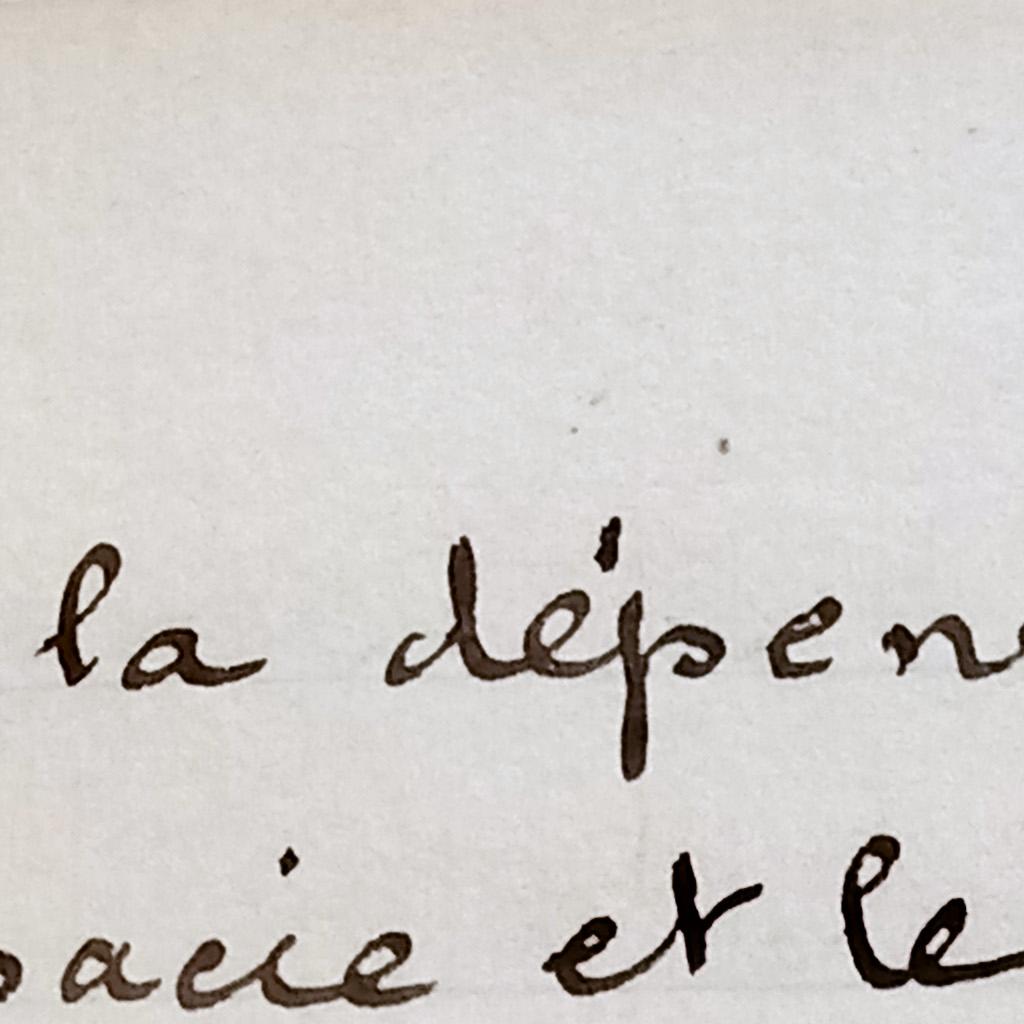 la dépen
pacie et le